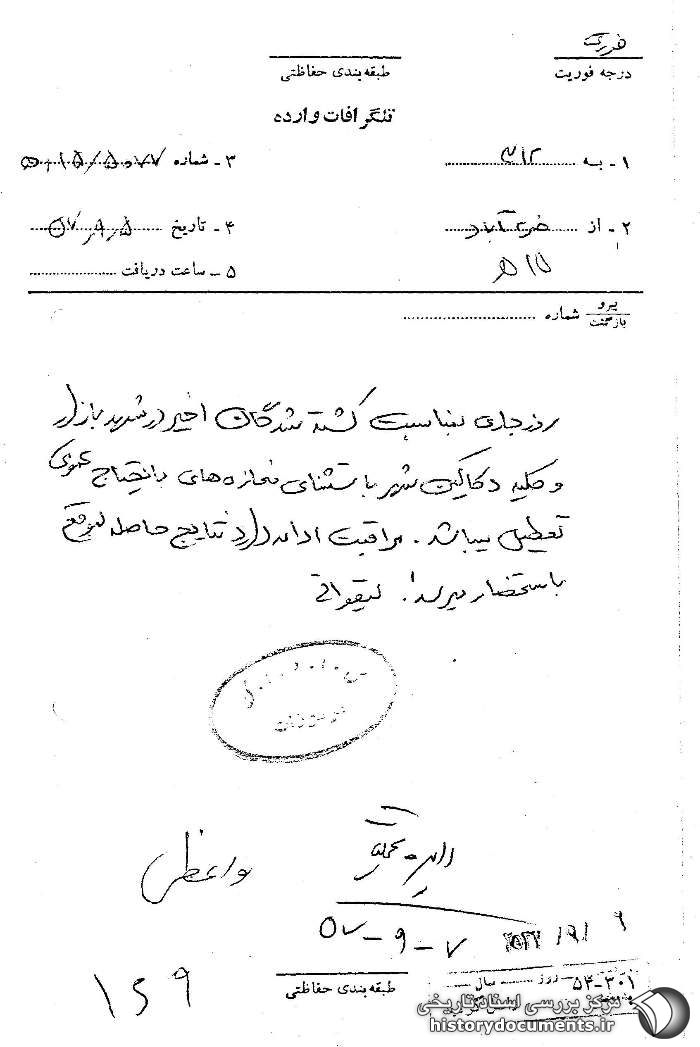 درجه فوریت
طبقه‌بندی حفاظتی
تلگرافات وارده
۱- به ۳۱۲
۳- شماره ۵۰۷۷/ ۱۵ ه
۲- از خرم آباد
۴- تاریخ ۵۷٫۹٫۵
۵ ـ ساعت دریافت
۱۵ ه
پیرو
بازگشت
شماره
روز جاری بمناسبت کشته شدگان اخیر در مشهد بازار
و کلیه دکاکین شهر باستثنای مغازه های مایحتاج عمومی
تعطیل میباشد. مراقبت ادامه دارد نتایج حاصله بموقع
باستحضار میرسد.
واعظی
۵۷-۹-۷
۹ /۹/
۱۵۹
طبقه‌بندی حفاظتی
۵۴-۳۰۱ روز سال
مرکز بررسی اسناد تاریخی
historydocuments.ir